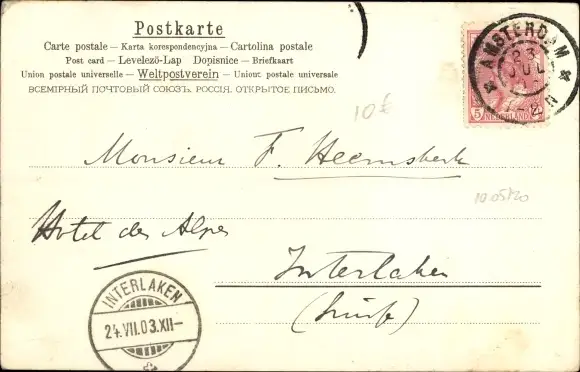 Postkarte
Carte postale — Karta korespondencyjna — Cartolina postale
Post card — Levelező-Lap Dopisnice — Briefkaart
Union postale universelle — Weltpostverein — Unione postale universale
ВСЕМІРНЫЙ ПОЧТОВЫЙ СОЮЗЪ. РОССІЯ. ОТКРЫТОЕ ПИСЬМО.
AMSTERDAM
23
JUL
5 NEDERLAND
10 £
Monsieur F. Heemskerk
Hotel des Alpes
Interlaken
(Suisse)
INTERLAKEN
24.VII.03.XII–